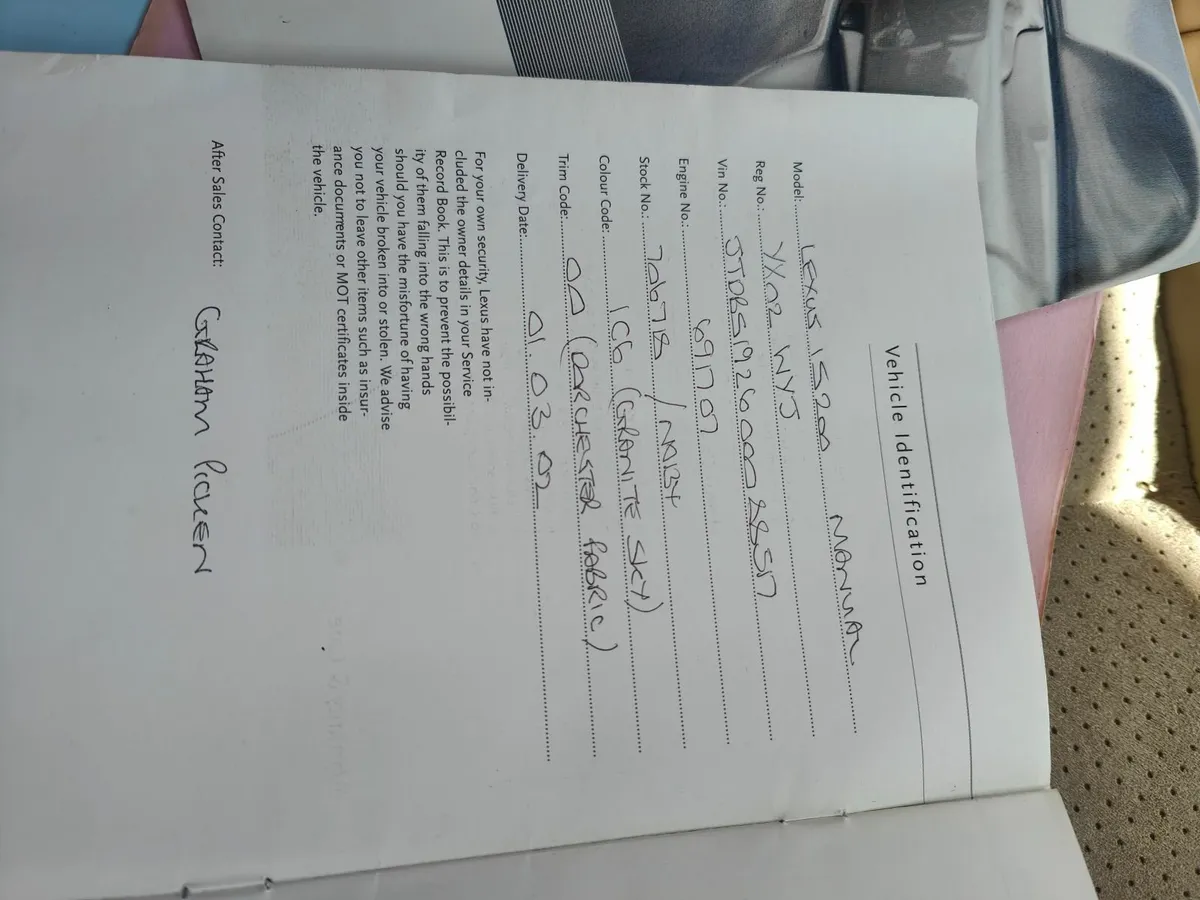 Vehicle Identification
Model: LEXUS IS200 MANUAL
Reg No.: YX02 WYJ
Vin No.:
Engine No.: 691707
Stock No.: 706718 /
Colour Code: 1C6 (GRANITE SKY)
Trim Code: (DORCHESTER FABRIC)
Delivery Date: 01.03.02
For your own security, Lexus have not in-
cluded the owner details in your Service
Record Book. This is to prevent the possibil-
ity of them falling into the wrong hands
should you have the misfortune of having
your vehicle broken into or stolen. We advise
you not to leave other items such as insur-
ance documents or MOT certificates inside
the vehicle.
After Sales Contact: GRAHAM